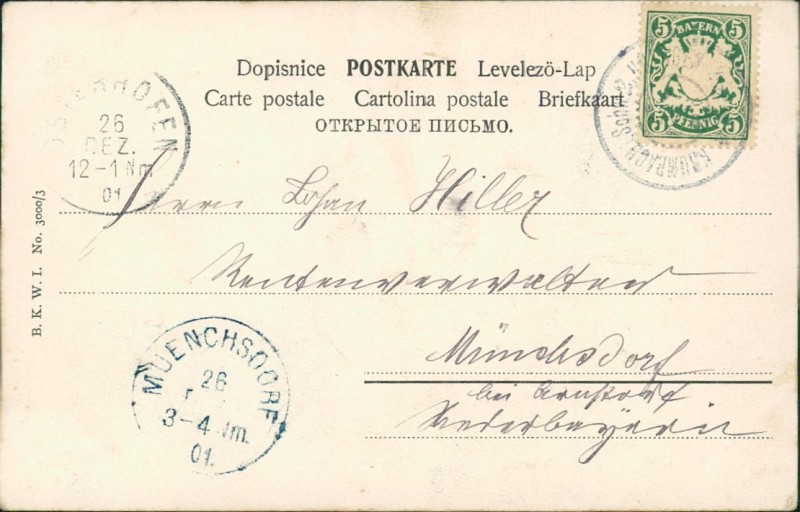 Dopisnice POSTKARTE Levelezö-Lap
Carte postale Cartolina postale Briefkaart
ОТКРЫТОЕ ПИСЬМО.
5 BAYERN 5
5 PFENNIG 5
OSTERHOFEN
26
DEZ.
12-1 Nm
01
Herrn Johan Hiller
Rentenverwalter
Münchsdorf
bei Arnstorf
Niederbayern
B. K. W. I. No. 3000/3
MUENCHSDORF
26
3-4 Nm.
01.